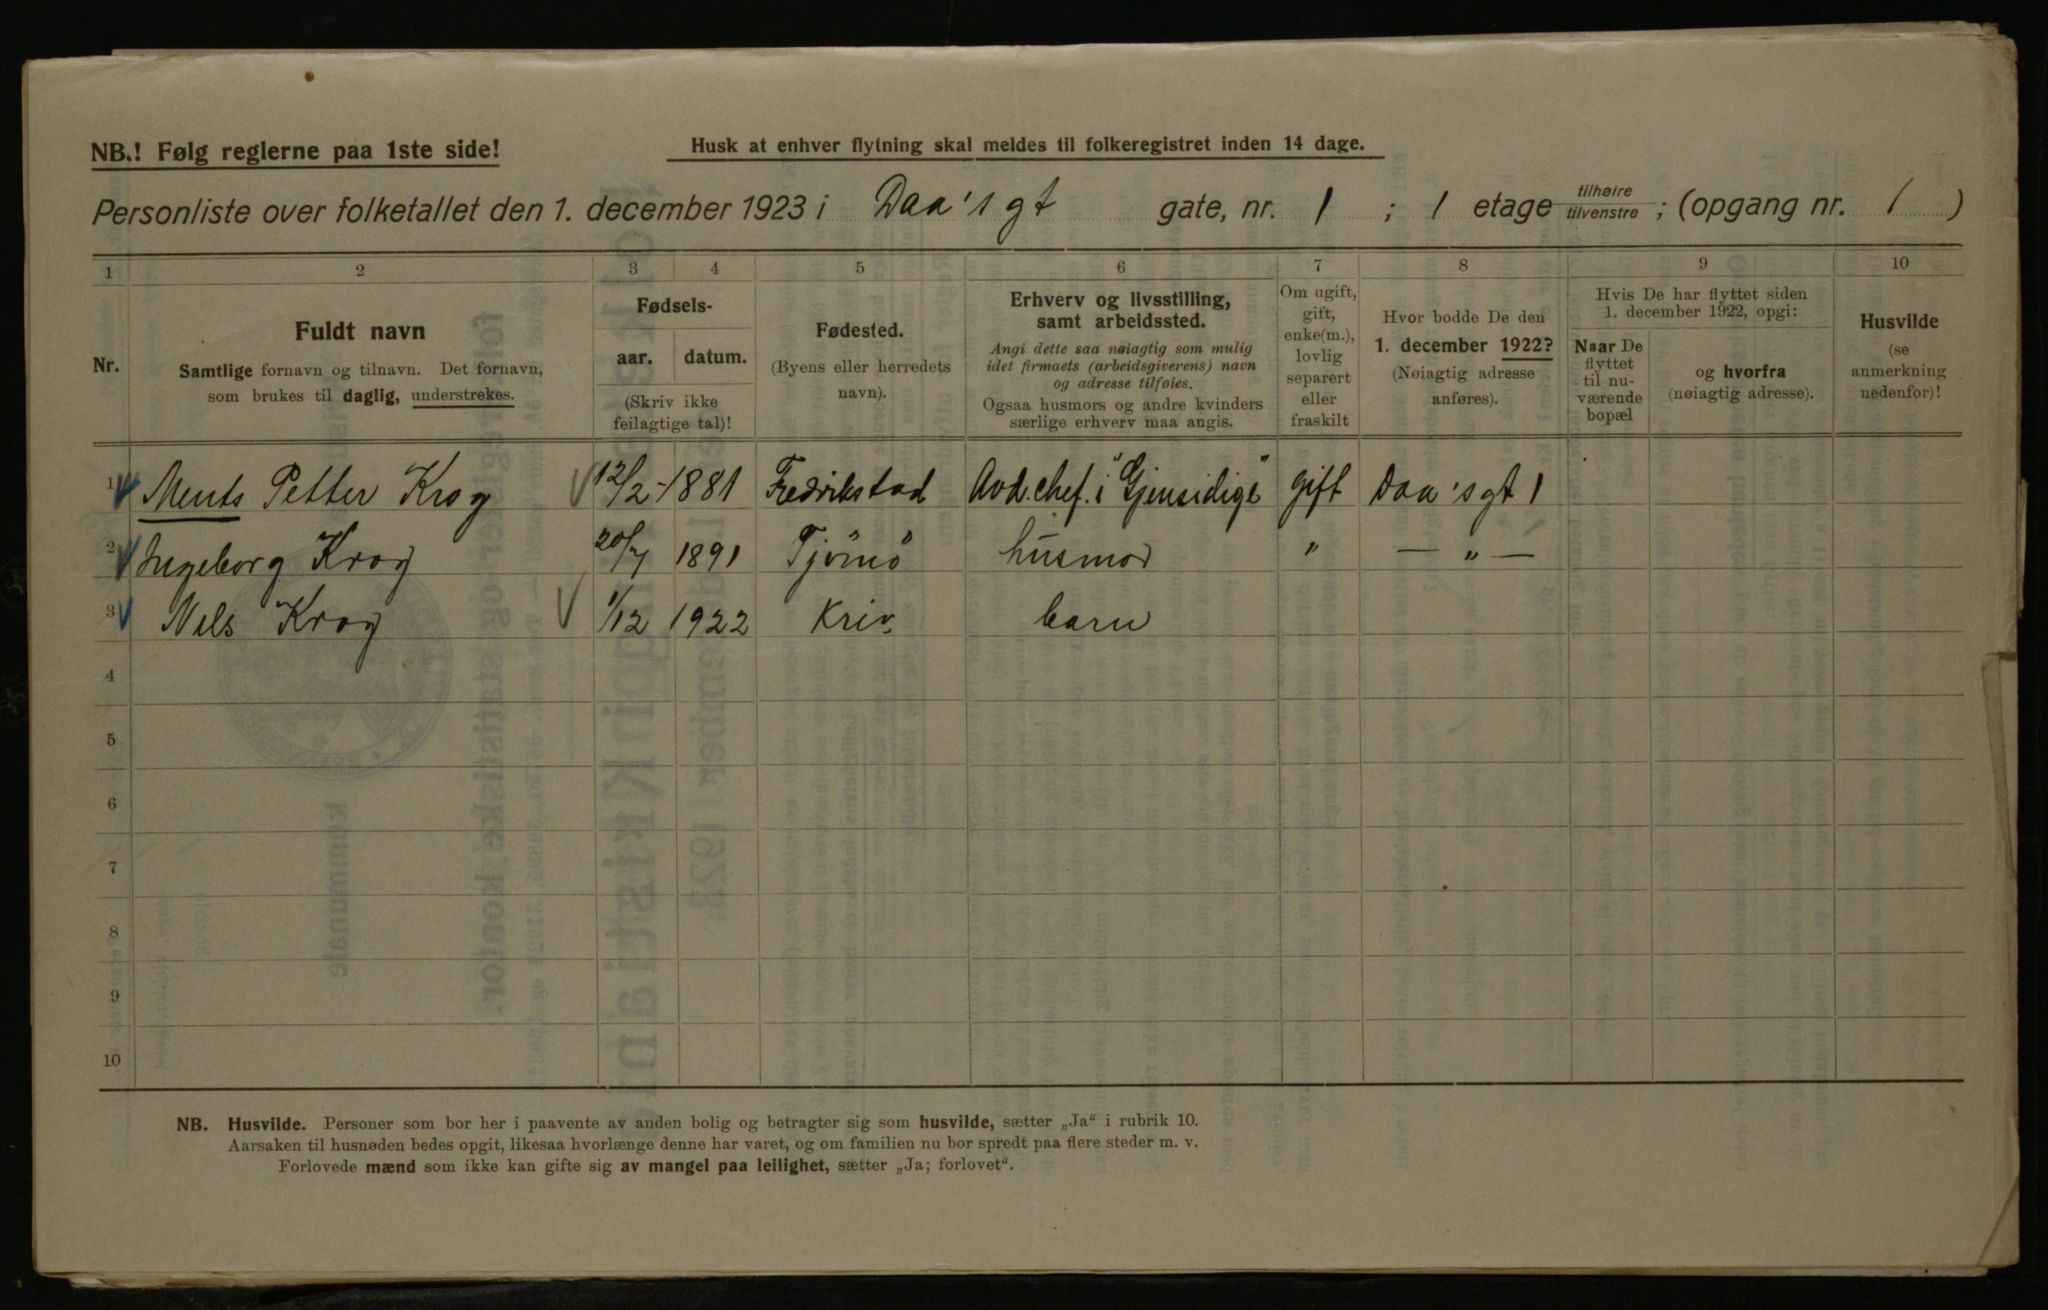 NB.! Følg reglerne paa 1ste side!
Husk at enhver flytning skal meldes til folkeregistret inden 14 dage.
Personliste over folketallet den 1. december 1923 i Daa's gt gate, nr. 1 ; 1 etage tilhøire/tilvenstre ; (opgang nr. 1 )
1 2 3 4 5 6 7 8 9 10
Nr.
Fuldt navn
Samtlige fornavn og tilnavn. Det fornavn,
som brukes til daglig, understrekes.
Fødsels-
aar. datum.
(Skriv ikke
feilagtige tal)!
Fødested.
(Byens eller herredets
navn).
Erhverv og livsstilling,
samt arbeidssted.
Angi dette saa nøiagtig som mulig
idet firmaets (arbeidsgiverens) navn
og adresse tilføies.
Ogsaa husmors og andre kvinders
særlige erhverv maa angis.
Om ugift,
gift,
enke(m.),
lovlig
separert
eller
fraskilt
Hvor bodde De den
1. december 1922?
(Nøiagtig adresse
anføres).
Hvis De har flyttet siden
1. december 1922, opgi:
Naar De
flyttet
til nu-
værende
bopæl
og hvorfra
(nøiagtig adresse).
Husvilde
(se
anmerkning
nedenfor)!
1 Ments Petter Krog 12/2 - 1881 Fredrikstad Avd. chef. i "Gjensidige" gift Daa's gt 1
2 Ingeborg Krog 20/7 1891 Tjömö husmor " — " —
3 Nils Krog 1/12 1922 Kria. barn
4
5
6
7
8
9
10
NB. Husvilde. Personer som bor her i paavente av anden bolig og betragter sig som husvilde, sætter „Ja“ i rubrik 10.
Aarsaken til husnøden bedes opgit, likesaa hvorlænge denne har varet, og om familien nu bor spredt paa flere steder m. v.
Forlovede mænd som ikke kan gifte sig av mangel paa leilighet, sætter „Ja; forlovet“.